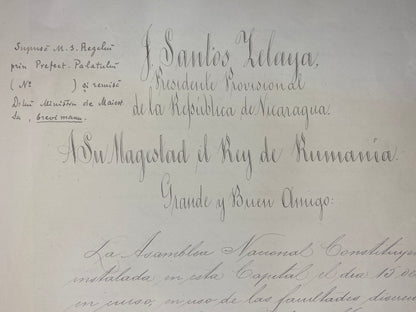 Supusă M. S. Regelui
prin Prefect. Palatului
(No ) și remisă
Dlui Ministru de
brevi manu.
J. Santos Zelaya,
Presidente Provisional
de la República de Nicaragua.
A Su Magestad el Rey de Rumania.
Grande y Buen Amigo:
La Asamblea Nacional Constituyen
instalada en esta Capital el dia 15 de
en curso, en uso de las facultades